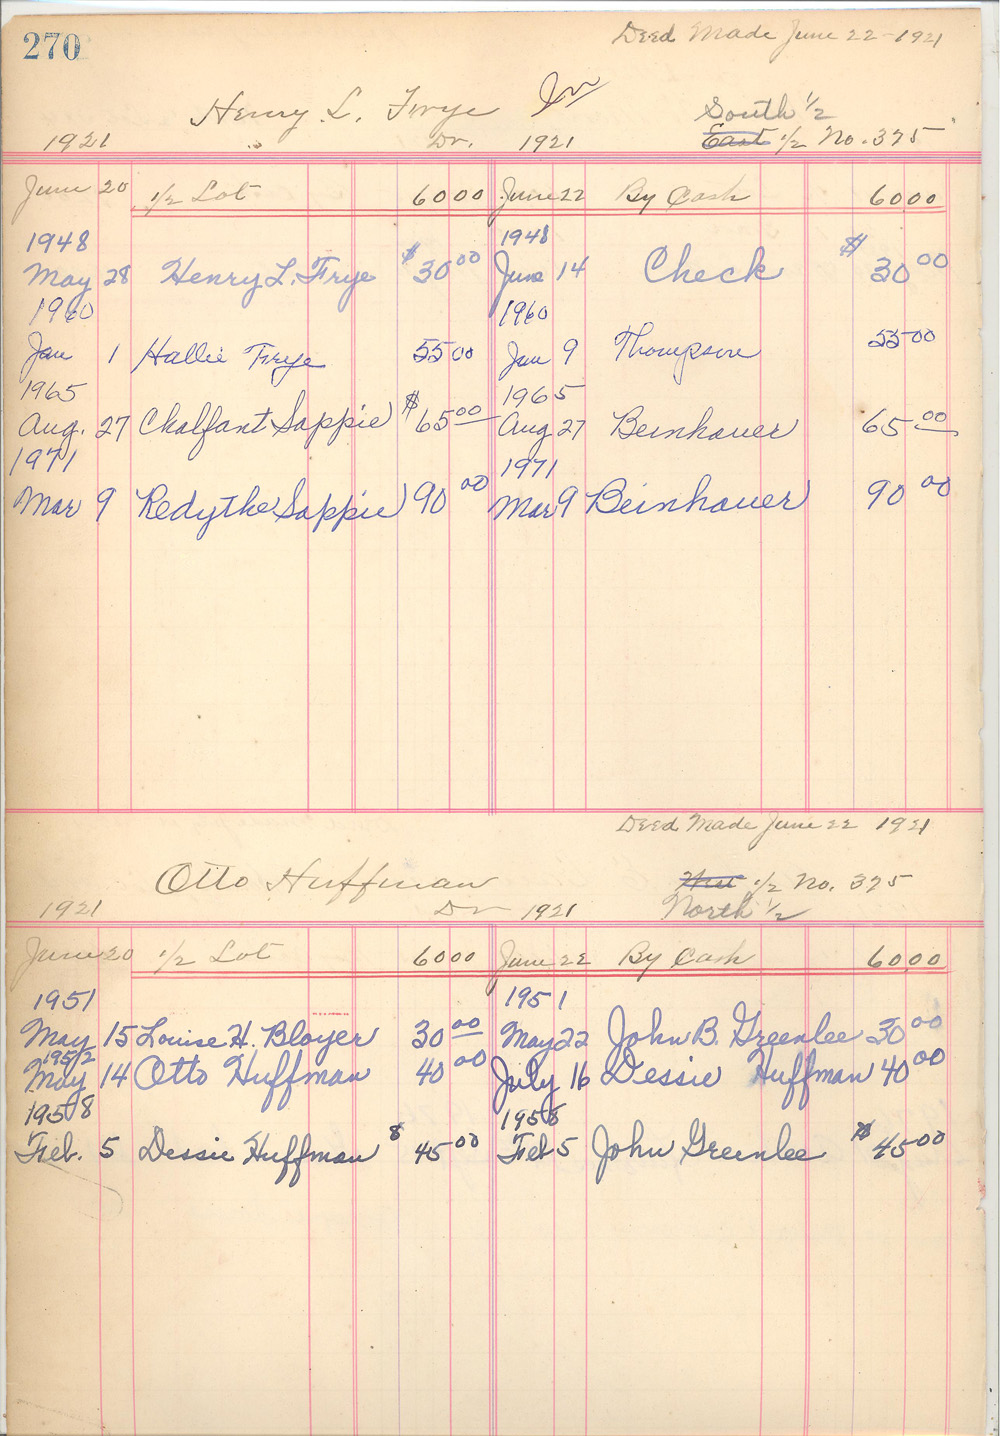 270
Deed Made June 22-1921
Henry L. Frye
South 1/2
1921 Dr. 1921 East 1/2 No. 375
June 20 1/2 Lot 60 00 June 22 By Cash 60 00
1948 1948
May 28 Henry L. Frye $30 00 June 14 Check $30 00
1960 1960
Jan 1 Hallie Frye 55 00 Jan 9 Thompson 55 00
1965 1965
Aug. 27 Chalfant Sappie $65 00 Aug 27 Beinhauer 65 00
1971 1971
Mar 9 Redythe Sappie 90 00 Mar 9 Beinhauer 90 00
Deed Made June 22 1921
Otto Huffman West 1/2 No. 375
1921 Dr 1921 North 1/2
June 20 1/2 Lot 60 00 June 22 By Cash 60 00
1951 1951
May 15 Louise H. Bloyer 30 00 May 22 John B. Greenlee 30 00
1952
May 14 Otto Huffman 40 00 July 16 Dessie Huffman 40 00
1958 1958
Feb. 5 Dessie Huffman $45 00 Feb 5 John Greenlee $45 00